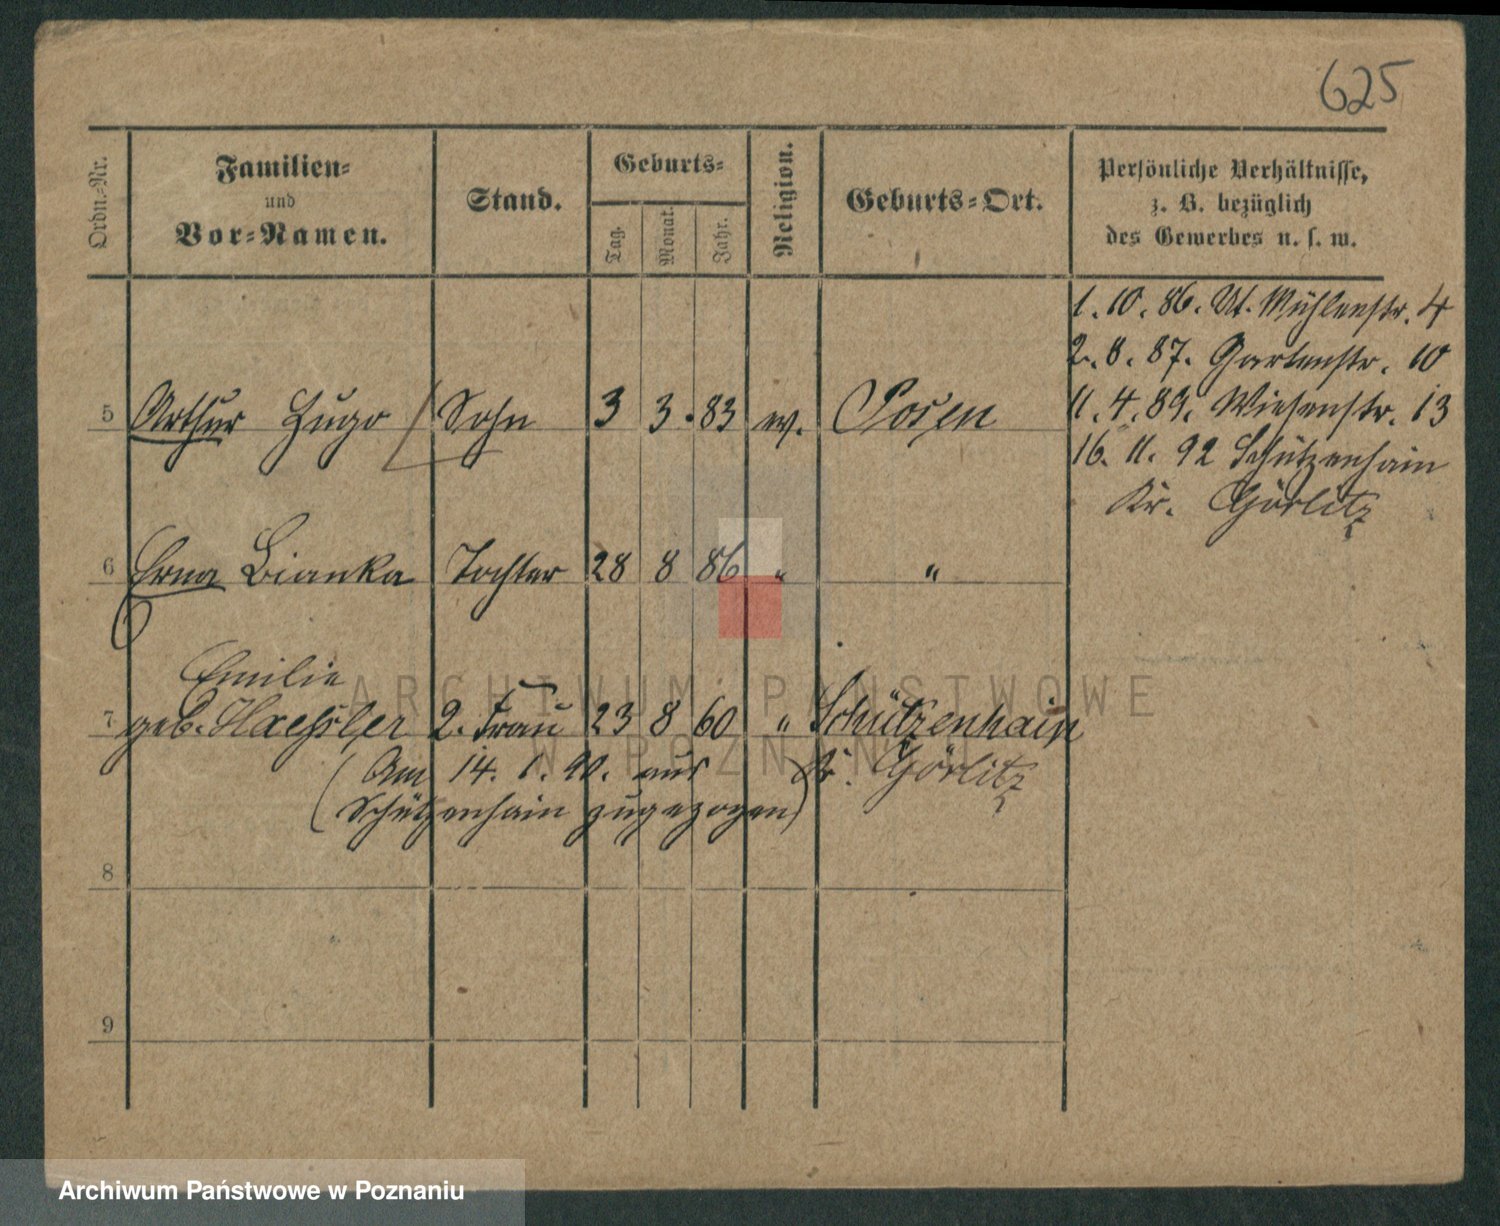 625
Ordn.-Nr.
Familien-
und
Vor-Namen.
Stand.
Geburts-
Tag.
Monat.
Jahr.
Religion.
Geburts-Ort.
Persönliche Verhältnisse,
z. B. bezüglich
des Gewerbes u. s. w.
1. 10. 86. Ut. Mühlenstr. 4
2. 8. 87. Gartenstr. 10
11. 4. 89. Wiesenstr. 13
16. 11. 92 Schützenhain
Kr. Görlitz
5 Arthur Hugo Sohn 3 3. 83 ev. Posen
6 Erna Bianka Tochter 28 8 86 " "
Emilie
7 geb. Haessler 2. Frau 23 8 60 " Schützenhain
(Am 14. 1. 90. aus Kr. Görlitz
Schützenhain zugezogen)
8
9
ARCHIWUM PAŃSTWOWE
W POZNANIU
Archiwum Państwowe w Poznaniu